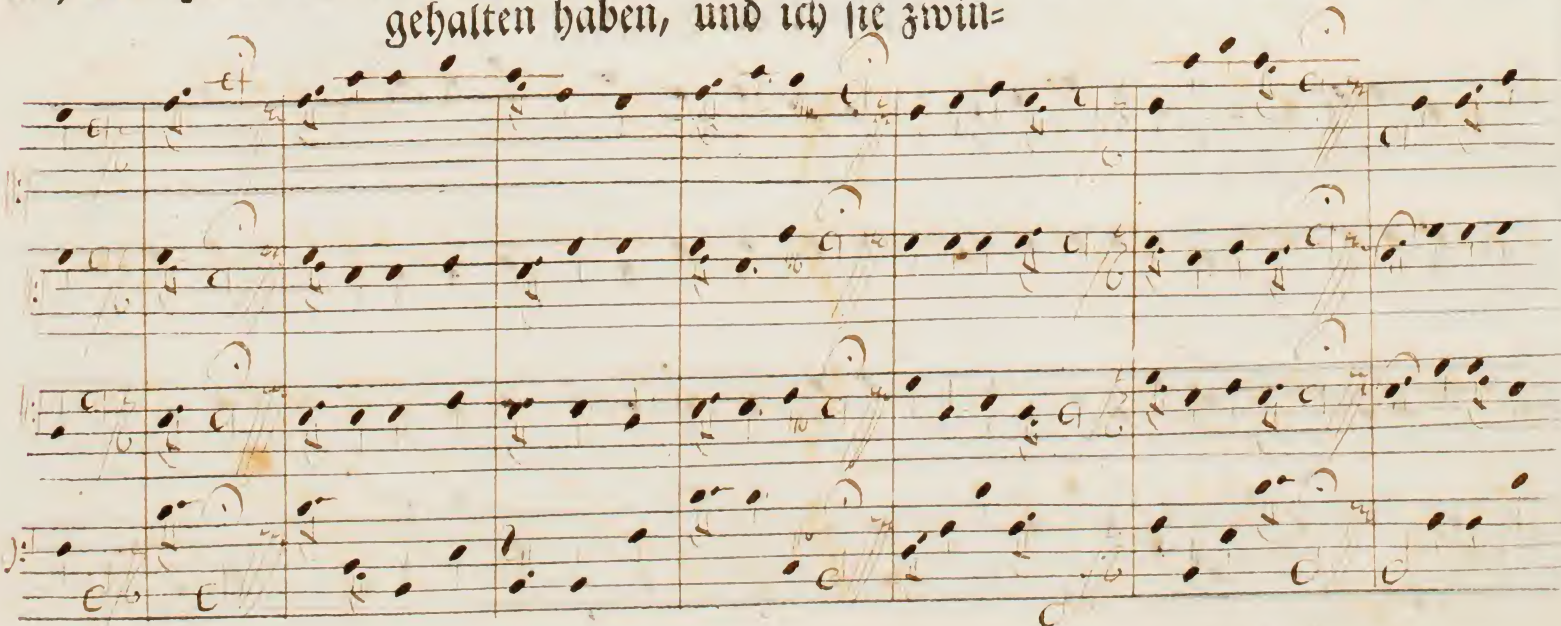 gehalten haben, und ich sie zwin=